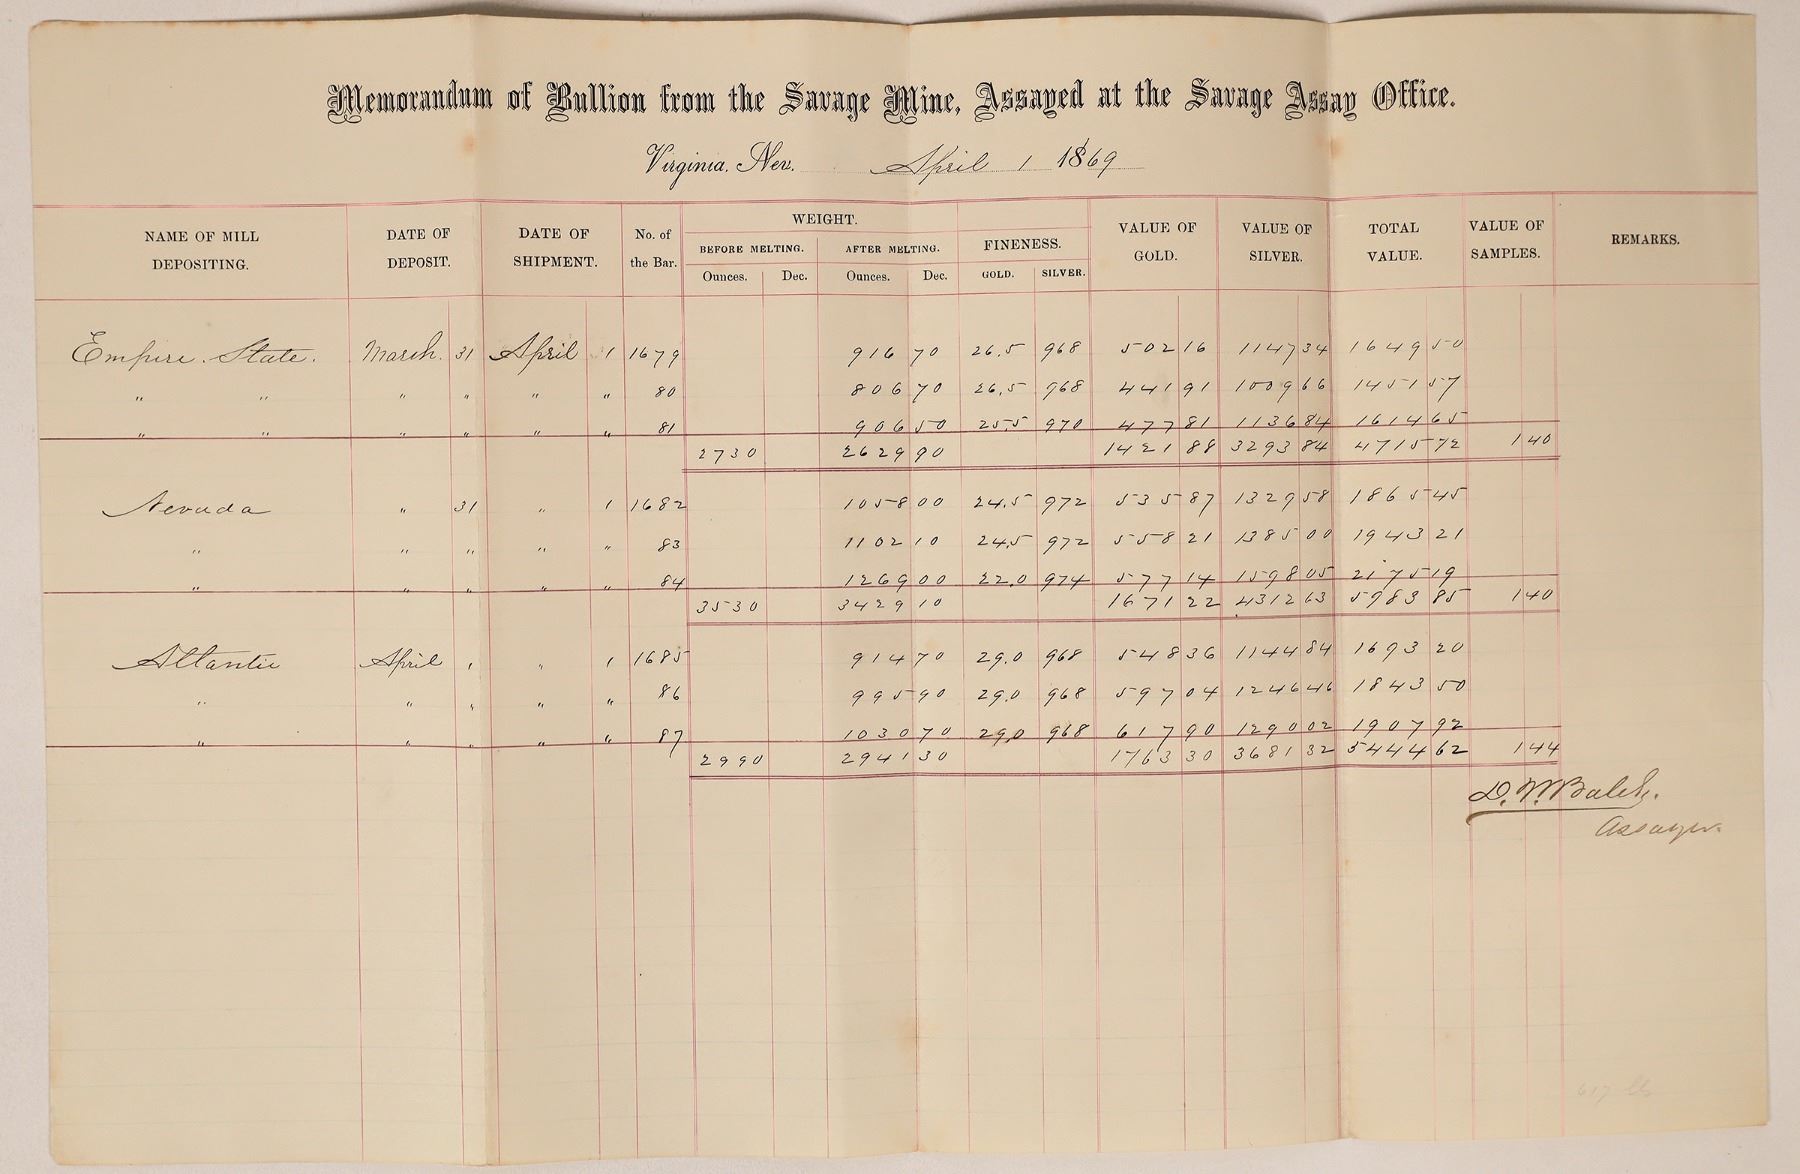 Memorandum of Bullion from the Savage Mine, Assayed at the Savage Assay Office.
Virginia, Nev. April 1 1869
NAME OF MILL DEPOSITING. DATE OF DEPOSIT. DATE OF SHIPMENT. No. of the Bar. WEIGHT. BEFORE MELTING. Ounces. Dec. AFTER MELTING. Ounces. Dec. FINENESS. GOLD. SILVER. VALUE OF GOLD. VALUE OF SILVER. TOTAL VALUE. VALUE OF SAMPLES. REMARKS.
Empire State. March. 31 April 1 1679 916 70 26.5 968 502 16 1147 34 1649 50
" " " " " " 80 806 70 26.5 968 441 91 1009 66 1451 57
" " " " " " 81 906 50 25.5 970 477 81 1136 84 1614 65
2730 2629 90 1421 88 3293 84 4715 72 1 40
Nevada " 31 " 1 1682 1058 00 24.5 972 535 87 1329 58 1865 45
" " " " " 83 1102 10 24.5 972 558 21 1385 00 1943 21
" " " " " 84 1269 00 22.0 974 577 14 1598 05 2175 19
3530 3429 10 1671 22 4312 63 5983 85 1 40
Atlantic April 1 " 1 1685 914 70 29.0 968 548 36 1144 84 1693 20
" " " " " 86 995 90 29.0 968 597 04 1246 46 1843 50
" " " " " 87 1030 70 29.0 968 617 90 1290 02 1907 92
2990 2941 30 1763 30 3681 32 5444 62 1 44
D. W. Balch.
Assayer.